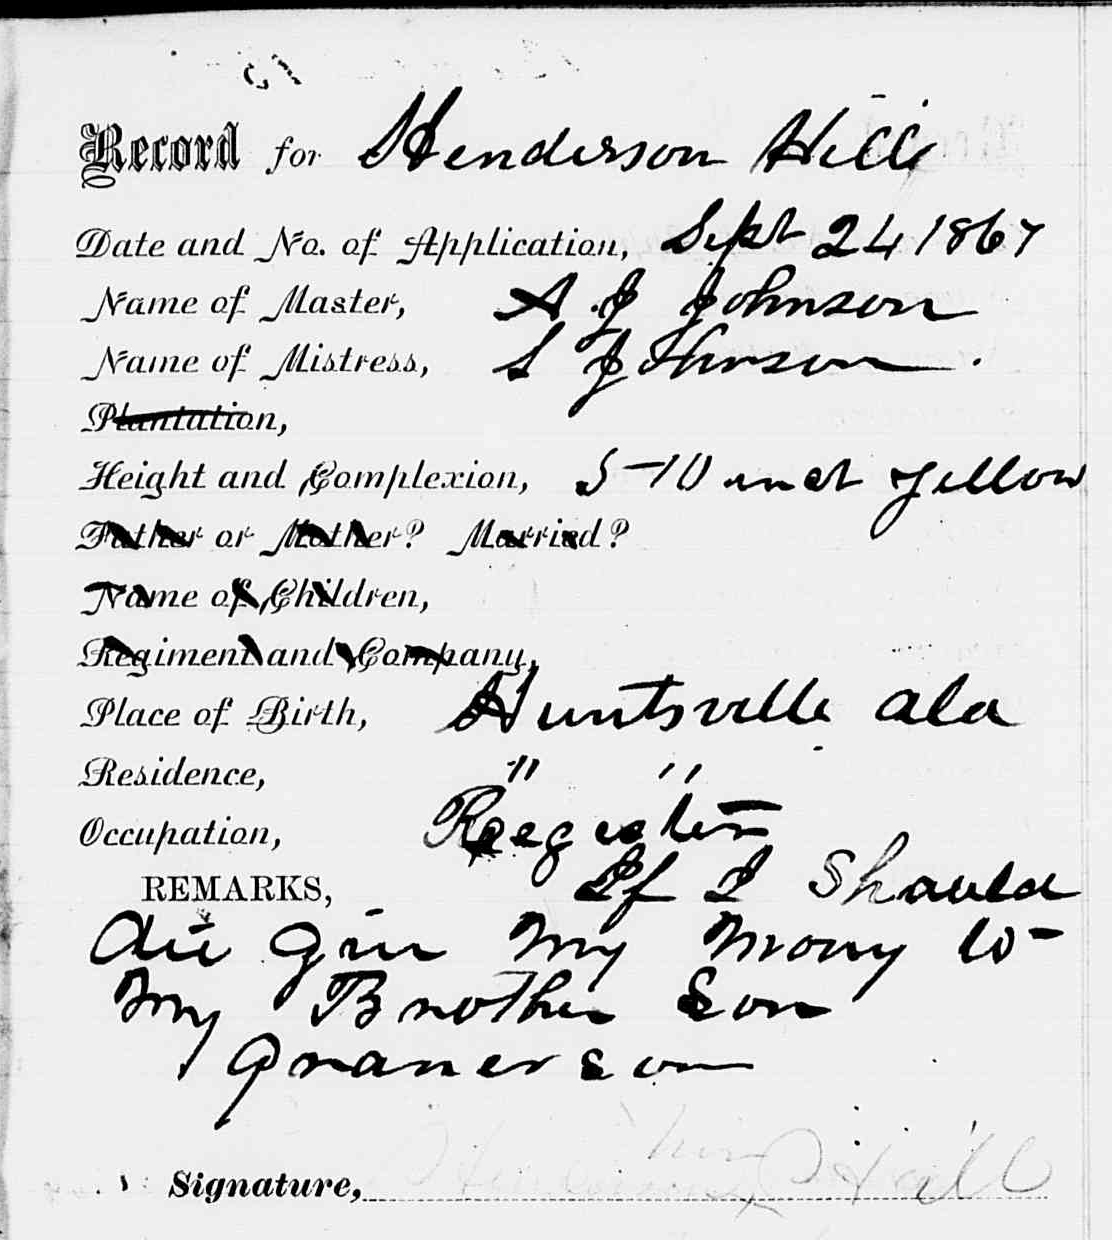 Record for Henderson Hill
Date and No. of Application, Sept 24 1867
Name of Master, A J Johnson
Name of Mistress, S Johnson
Plantation,
Height and Complexion, 5-10 yellow
Father or Mother? Married?
Name of Children,
Regiment and Company,
Place of Birth, Huntsville ala
Residence, " "
Occupation,
REMARKS, If I Should
die give My Mony to
My Brother Son
Signature, Hill